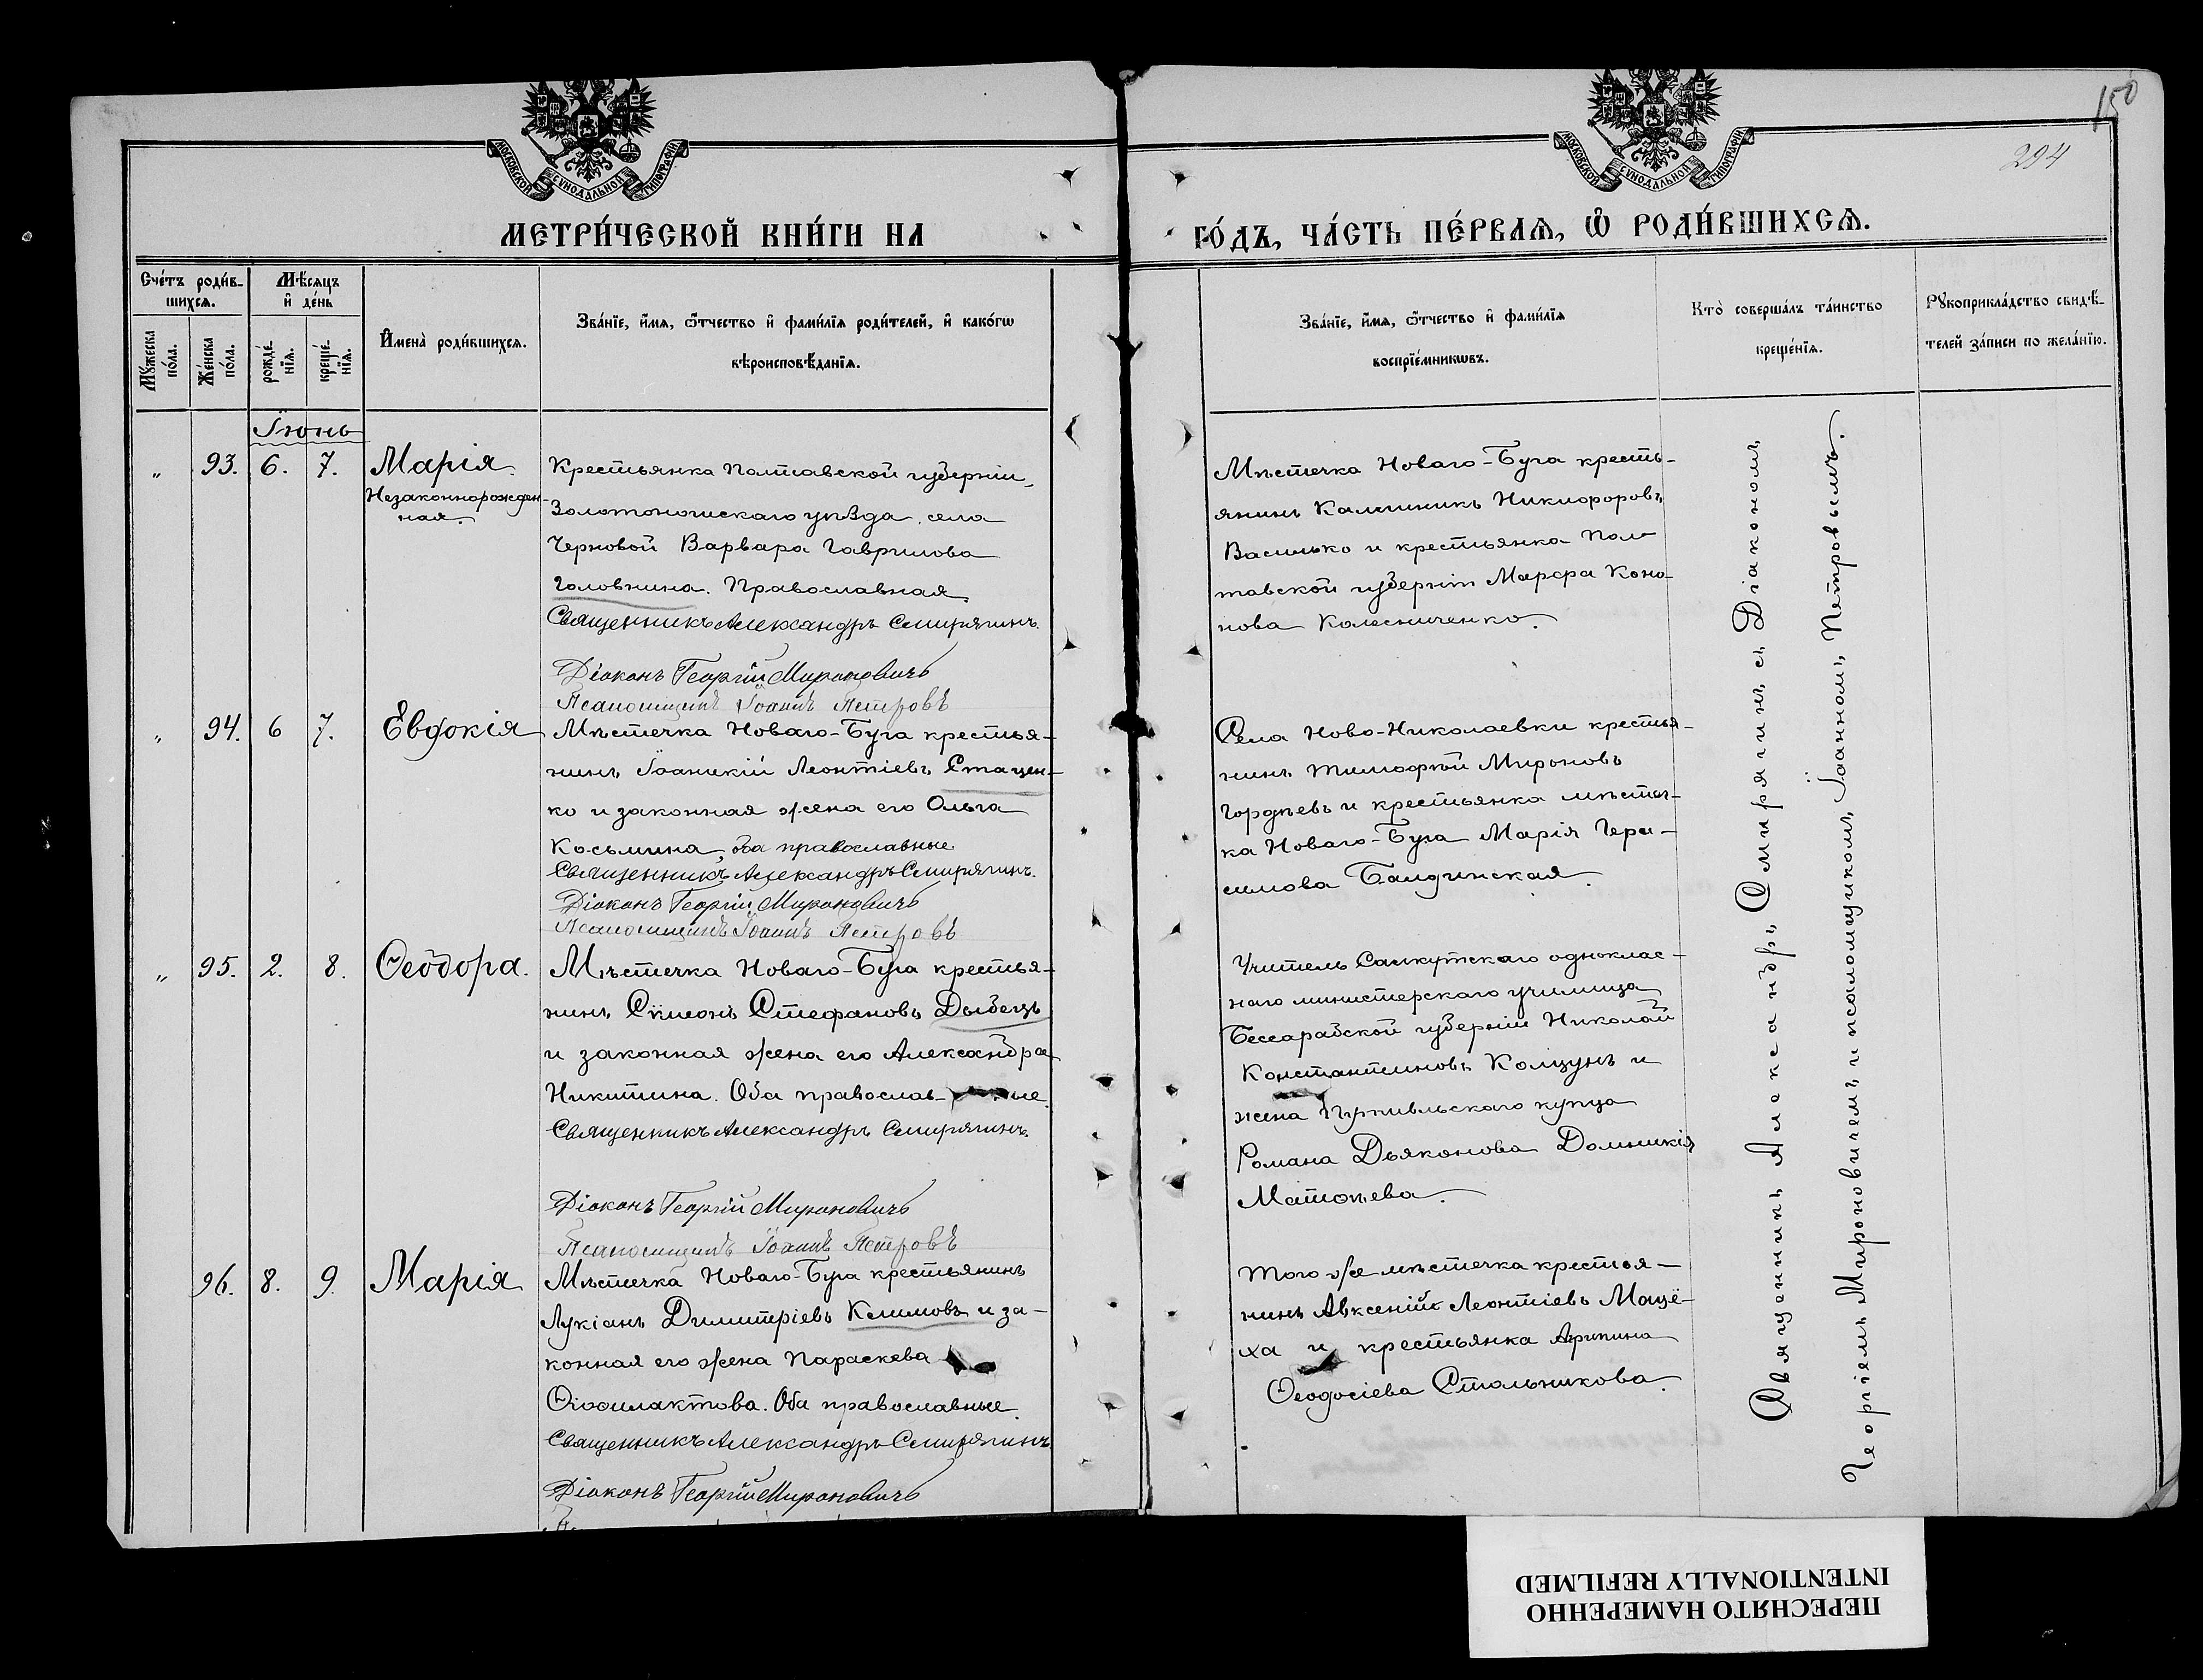 150
294
МОСКОВСКОЙ СѴНОДАЛЬНОЙ ТИПОГРАФІИ
МОСКОВСКОЙ СѴНОДАЛЬНОЙ ТИПОГРАФІИ
МЕТРИ́ЧЕСКОЙ КНИ́ГИ НА
ГО́ДЪ, ЧА́СТЬ ПЕ́РВАѦ, Ѽ РОДИ́ВШИХСѦ.
Сче́тъ роди́в-
шихсѧ.
Мꙋ́жеска по́ла.
Же́нска по́ла.
Мѣ́сѧцъ
и҆ де́нь
рожде́нїѧ.
креще́нїѧ.
И҆мена̀ роди́вшихсѧ.
Зва́нїе, и҆́мѧ, ѻ҆́тчество и҆ фами́лїѧ роди́телей, и҆ како́гѡ
вѣроисповѣ́данїѧ.
Зва́нїе, и҆́мѧ, ѻ҆́тчество и҆ фами́лїѧ
воспрїе́мникѡвъ.
Кто̀ соверша́лъ та́инство
креще́нїѧ.
Рꙋкоприкла́дство свидѣ́-
телей за́писи по жела́нїю.
Іюнь
„ 93. 6. 7. Марія.
Незаконнорожден-
ная.
Крестьянка Полтавской губерніи,
Золотоношскаго уѣзда, села
Черновой Варвара Гаврилова
Головнина. Православная.
Священникъ Александръ Смирягинъ.
Діаконъ Георгій Мироновичъ
Псаломщикъ Іоаннъ Петровъ
Мѣстечка Новаго-Буга кресть-
янинъ Каллиникъ Никифоровъ
Василько и крестьянка Пол-
тавской губерніи Марфа Коно-
нова Колесниченко.
„ 94. 6 7. Евдокія
Мѣстечка Новаго-Буга крестья-
нинъ Іоанникій Леонтіевъ Стацен-
ко и законная жена его Ольга
Косьмина, оба православные
Священникъ Александръ Смирягинъ.
Діаконъ Георгій Мироновичъ
Псаломщикъ Іоаннъ Петровъ
Села Ново-Николаевки крестья-
нинъ Тимофѣй Мироновъ
Гордѣевъ и крестьянка мѣстеч-
ка Новаго-Буга Марія Гера-
симова
„ 95. 2. 8. Ѳеодора.
Мѣстечка Новаго-Буга крестья-
нинъ Сѵмеонъ Стефановъ Дыбецъ
и законная жена его Александра
Никитина. Оба православ- ные.
Священникъ Александръ Смирягинъ.
Діаконъ Георгій Мироновичъ
Псаломщикъ Іоаннъ Петровъ
Учитель одноклас-
наго министерскаго училища
Бессарабской губерніи Николай
Константиновъ Колцунъ и
жена купца
Романа Дьяконова Домникія
Матѳѣева.
96. 8. 9. Марія
Мѣстечка Новаго-Буга крестьянинъ
Лукіанъ Димитріевъ Климовъ и за-
конная его жена Параскева
Ѳеофилактова. Оба православные.
Священникъ Александръ Смирягинъ
Діаконъ Георгій Мироновичъ
Того же мѣстечка крестья-
нинъ Авксеній Леонтіевъ Мацё-
ха и крестьянка Агрипина
Ѳеодосіева Стольникова.
Священникъ Александръ Смирягинъ съ Діакономъ
Георгіемъ Мироновичемъ и псаломщикомъ Іоанномъ Петровымъ.
ПЕРЕСНЯТО НАМЕРЕННО
INTENTIONALLY REFILMED